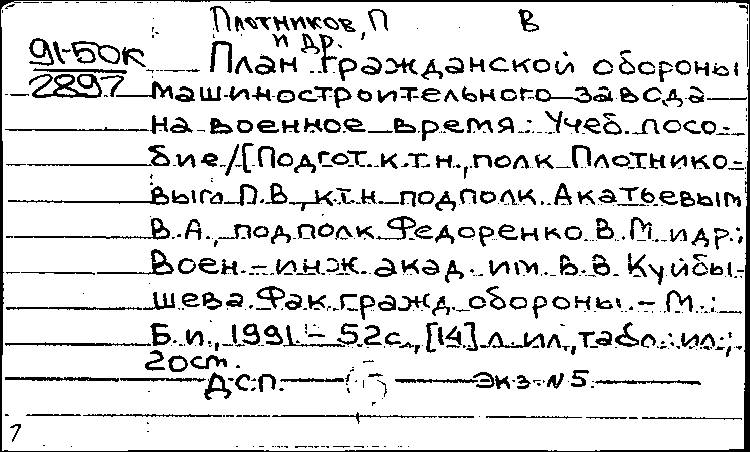 Плотников, П В
и др.
91-БОК
2897
План гражданской обороны
машиностроительного завода
на военное время: Учеб. посо-
бие/[Подгот. к.т.н., полк Плотнико-
вым П.В., к.т.н. подполк. Акатьевым
В.А., подполк. Федоренко В.М. и др.;
Воен.-инж. акад. им. В.В. Куйбы-
шева. Фак. гражд. обороны. - М.:
Б.и., 1991 - 52с., [14] л. ил., табл.: ил.;
20 см.
Д.С.П. Экз. N 5.
7